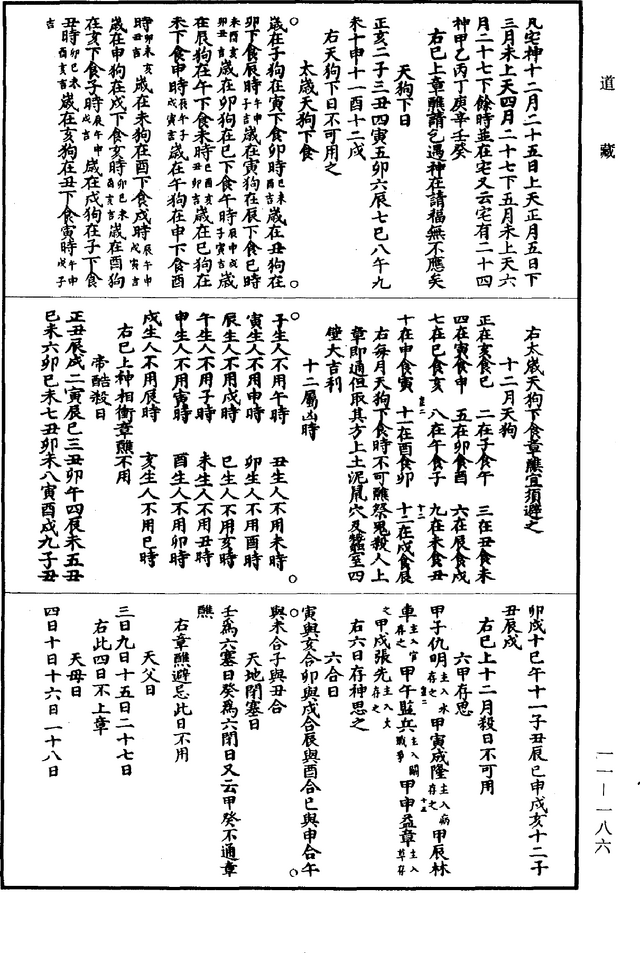 道藏
凡宅神十二月二十五日上天正月五日下
三月未上天四月二十七下五月未上天六
月二十七下餘時並在宅又云宅有二十四
神甲乙丙丁庚辛壬癸
右已上章醮請乞遇神在請福無不應矣
天狗下日
正亥二子三丑四寅五卯六辰七巳八午九
未十申十一酉十二戌
右天狗下日不可用之
太歲天狗下食
歲在子狗在寅下食卯時巳未吉歲在丑狗在
卯下食辰時午申子吉歲在寅狗在辰下食巳時
未酉亥卯丑吉歲在卯狗在巳下食午時辰申戌寅吉歲
在辰狗在午下食未時巳酉亥丑卯吉歲在巳狗在
未下食申時辰午子戌寅吉歲在午狗在申下食酉
時卯未亥丑吉歲在未狗在酉下食戌時辰午申戌寅吉
歲在申狗在戌下食亥時卯巳未酉亥吉歲在酉狗
在亥下食子時辰午申戌吉歲在戌狗在子下食
丑時卯巳未酉亥吉歲在亥狗在丑下食寅時午申戌子
吉
右太歲天狗下食章醮宜須避之
十二月天狗
正在亥食巳 二在子食午 三在丑食未
四在寅食申 五在卯食酉 六在辰食戌
七在巳食亥 八在午食子 九在未食丑
十在申食寅 十一在酉食卯 十二在戌食辰
右每月天狗下食時不可醮祭鬼殺人上
章即通但取其方上土泥鼠穴及蠶室四
壁大吉利
十二屬凶時
子生人不用午時 丑生人不用未時
寅生人不用申時 卯生人不用酉時
辰生人不用戌時 巳生人不用亥時
午生人不用子時 未生人不用丑時
申生人不用寅時 酉生人不用卯時
戌生人不用辰時 亥生人不用巳時
右已上神相衝章醮不用
帝酷殺日
正丑辰戌二寅辰巳三丑卯午四辰未五丑
巳未六卯巳未七丑卯未八寅酉戌九子丑
卯戌十巳午十一子丑辰巳申戌亥十二子
丑辰戌
右已上十二月殺日不可用
六甲存思
甲子仇明主入水存之甲寅成隆主入病存之甲辰林
車主入官存之甲午監兵主入鬬戰爭甲申益章主入草存
之甲戌張先主入火存之
右六日存神思之
六合日
寅與亥合卯與戌合辰與酉合巳與申合午
與未合子與丑合
天地閉塞日
壬為六塞日癸為六閉日又云甲癸不通章
醮
右章醮避忌此日不用
天父日
三日九日十五日二十七日
右此四日不上章
天母日
四日十日十六日一十八日
一一—一八六